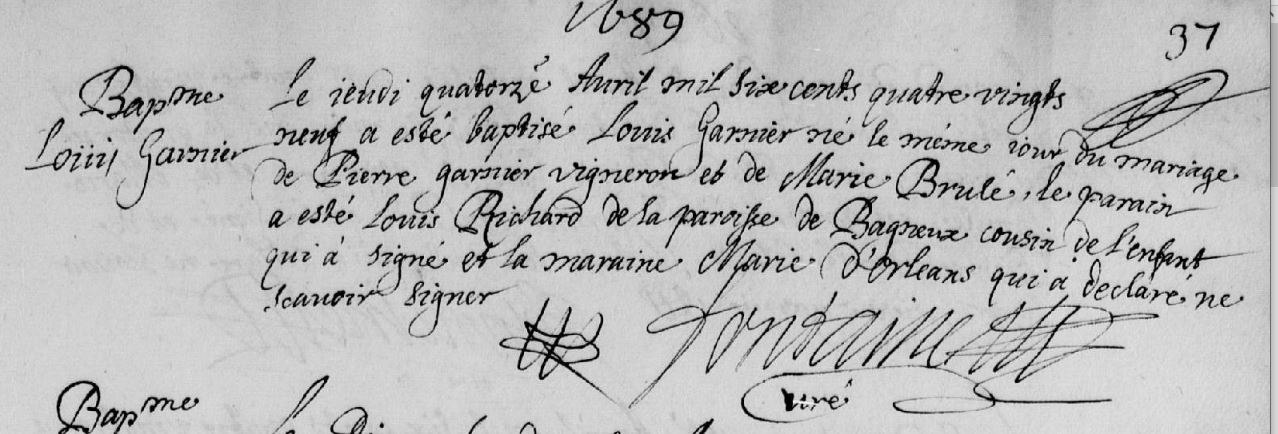 1689
37
Bapme
Loüis Garnier
Le jeudi quatorze Avril mil six cents quatre vingts
neuf a esté baptisé Louis Garnier né le méme iour du mariage
de Pierre garnier vigneron et de Marie Brulé, le parain
a esté Louis Richard de la paroisse de Bagneux cousin de l'enfant
qui à signé et la maraine Marie d'Orleans qui à declaré ne
scavoir signer
fontaine
Curé
Bapme